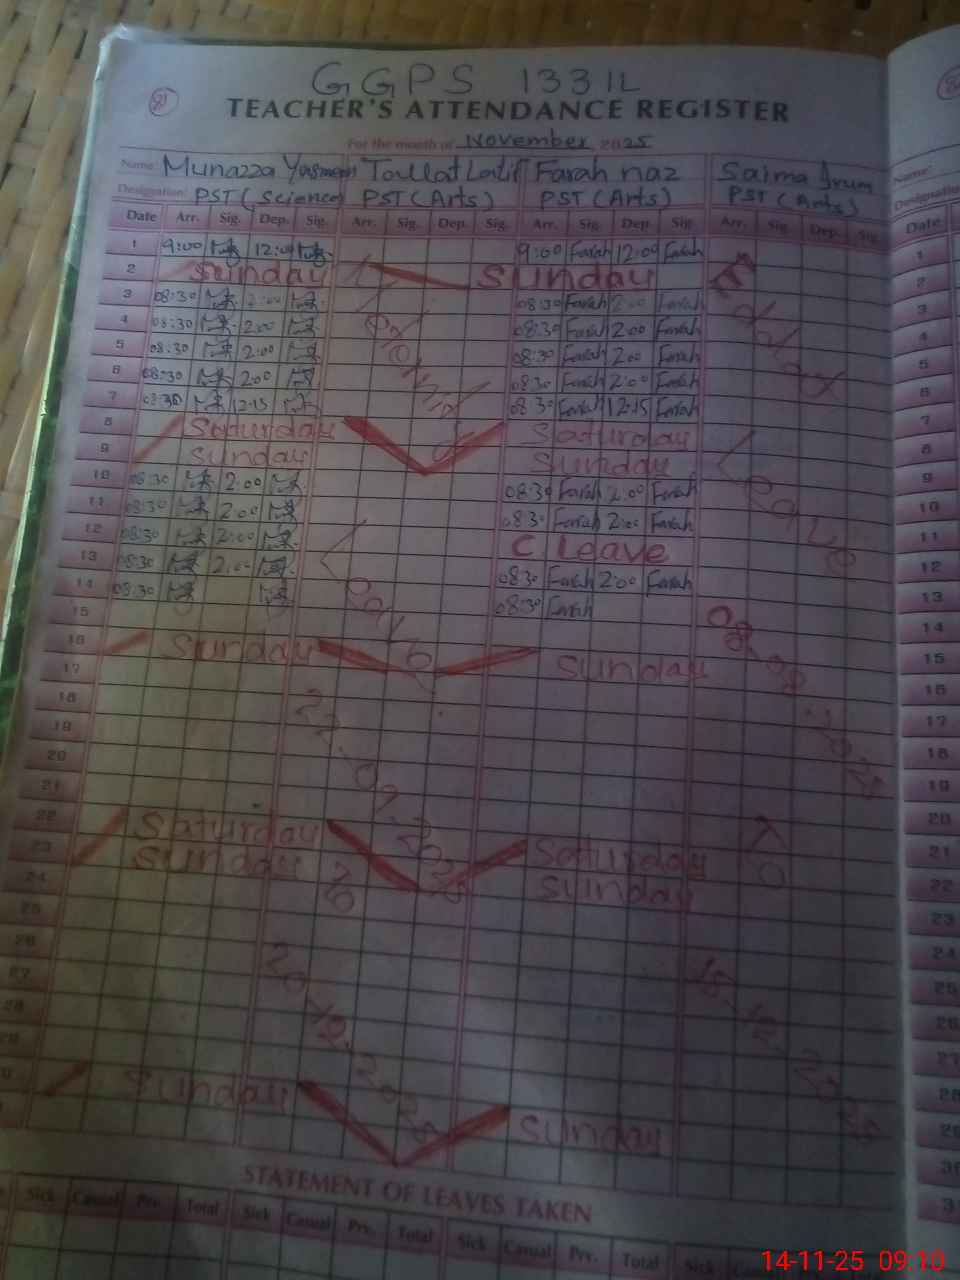 81
GGPS 133 1L
TEACHER'S ATTENDANCE REGISTER
For the month of November 2025
Name: Munazza Yasmeen Tallat Latif Farah naz Saima Irum
Designation: PST (Science) PST (Arts) PST (Arts) PST (Arts)
Date Arr. Sig. Dep. Sig. Arr. Sig. Dep. Sig. Arr. Sig. Dep. Sig. Arr. Sig. Dep. Sig.
1 9:00 12:00 9:00 Farah 12:00 Farah
2 Sunday Sunday
3 08:30 2:00 08:30 Farah 2:00 Farah
4 08:30 2:00 08:30 Farah 2:00 Farah
5 08:30 2:00 08:30 Farah 2:00 Farah
6 08:30 2:00 08:30 Farah 2:00 Farah
7 08:30 12:15 08:30 Farah 12:15 Farah
8 Saturday Saturday
9 Sunday Sunday
10 08:30 2:00 08:30 Farah 2:00 Farah
11 08:30 2:00 08:30 Farah 2:00 Farah
12 08:30 2:00 C Leave
13 08:30 2:00 08:30 Farah 2:00 Farah
14 08:30 08:30 Farah
15
16 Sunday Sunday
17
18
19
20
21
22 Saturday Saturday
23 Sunday Sunday
24
25
26
27
28
29
30 Sunday Sunday
Leave
22-09-2025
to
Leave
to
STATEMENT OF LEAVES TAKEN
Sick Casual Prv. Total Sick Casual Prv. Total Sick Casual Prv. Total Sick
Name:
Designation
Date
1
2
3
4
5
6
7
8
9
10
11
12
13
14
15
16
17
18
19
20
21
22
23
24
25
26
27
28
29
30
31
14-11-25 09:10